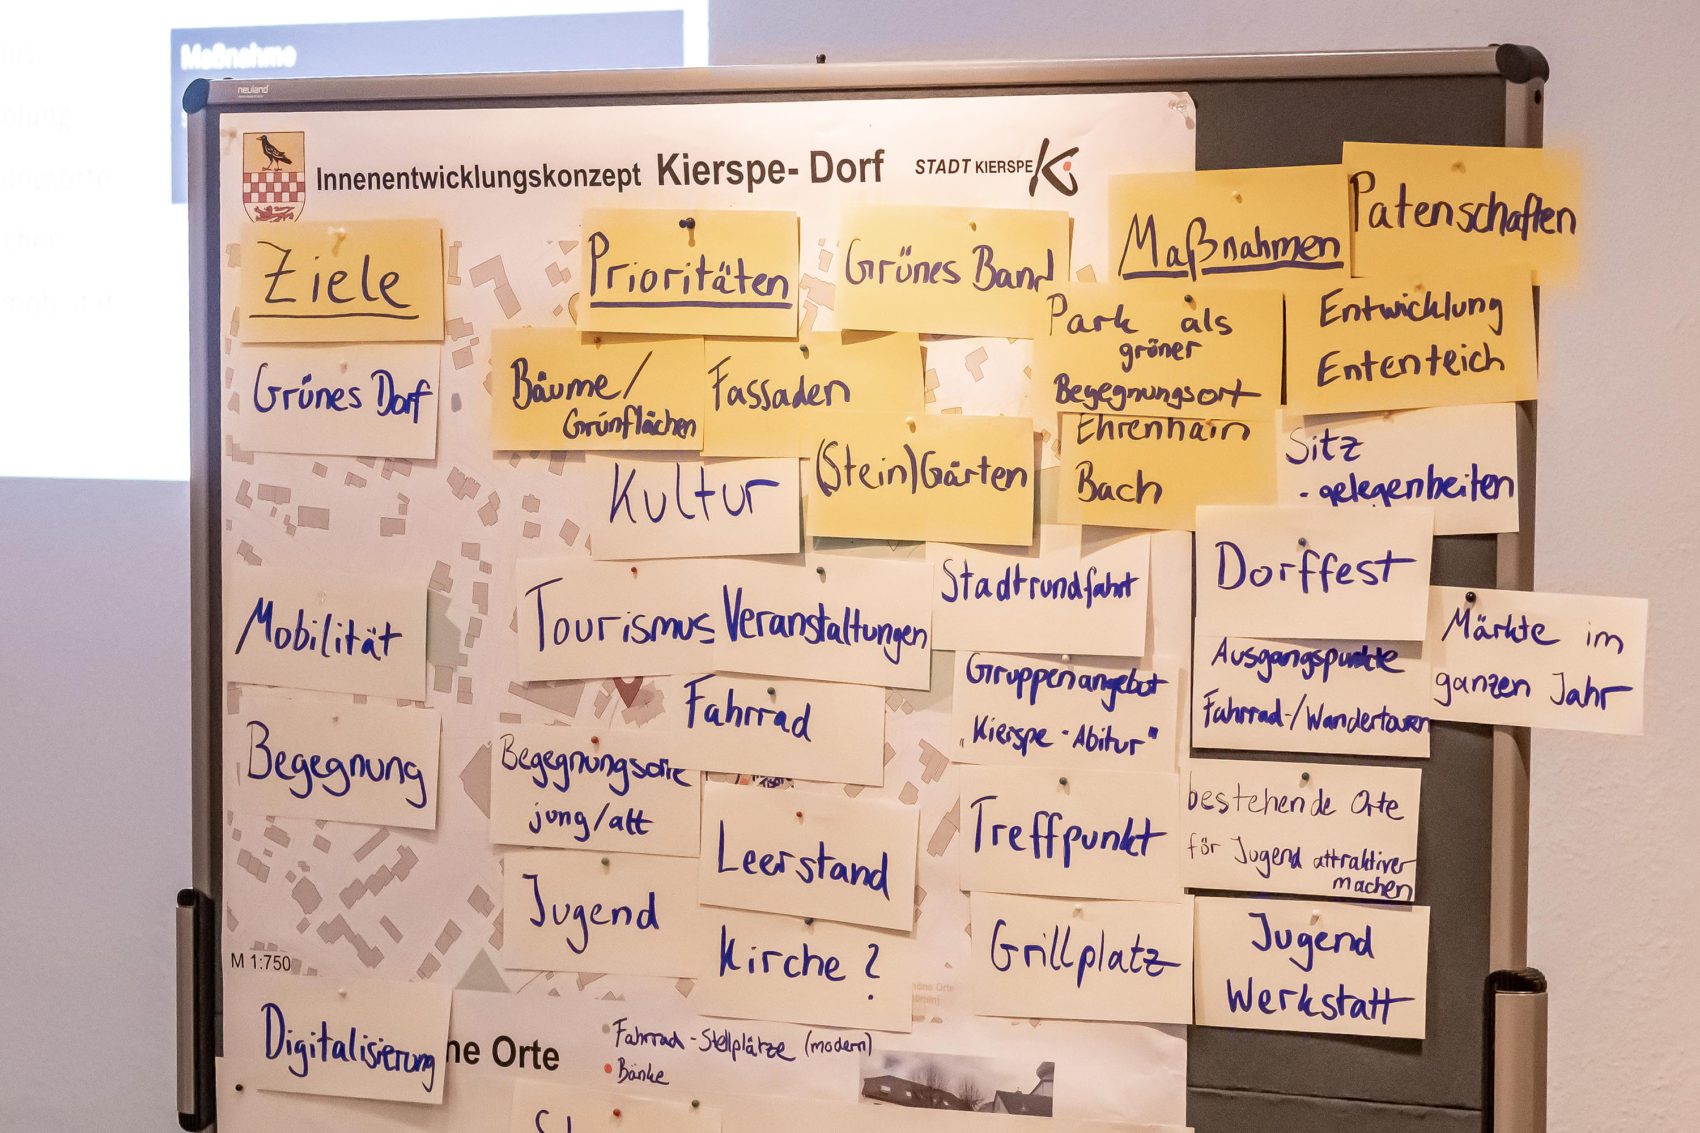 Maßnahme
neuland
Innenentwicklungskonzept Kierspe- Dorf
STADT KIERSPE
Ziele
Prioritäten
Grünes Band
Maßnahmen
Patenschaften
Grünes Dorf
Bäume/
Grünflächen
Fassaden
(Stein)Gärten
Park als
grüner
Begegnungsort
Entwicklung
Ententeich
Ehrenhain
Bach
Sitz
-gelegenheiten
Kultur
Mobilität
Tourismus
Veranstaltungen
Stadtrundfahrt
Dorffest
Märkte im
ganzen Jahr
Fahrrad
Gruppenangebot
"Kierspe-Abitur"
Ausgangspunkte
Fahrrad-/Wandertouren
Begegnung
Begegnungsorte
jung/alt
Leerstand
Treffpunkt
bestehende Orte
für Jugend attraktiver
machen
Jugend
Kirche?
Grillplatz
Jugend
Werkstatt
M 1:750
Digitalisierung
ne Orte
Fahrrad-Stellplätze (modern)
Bänke